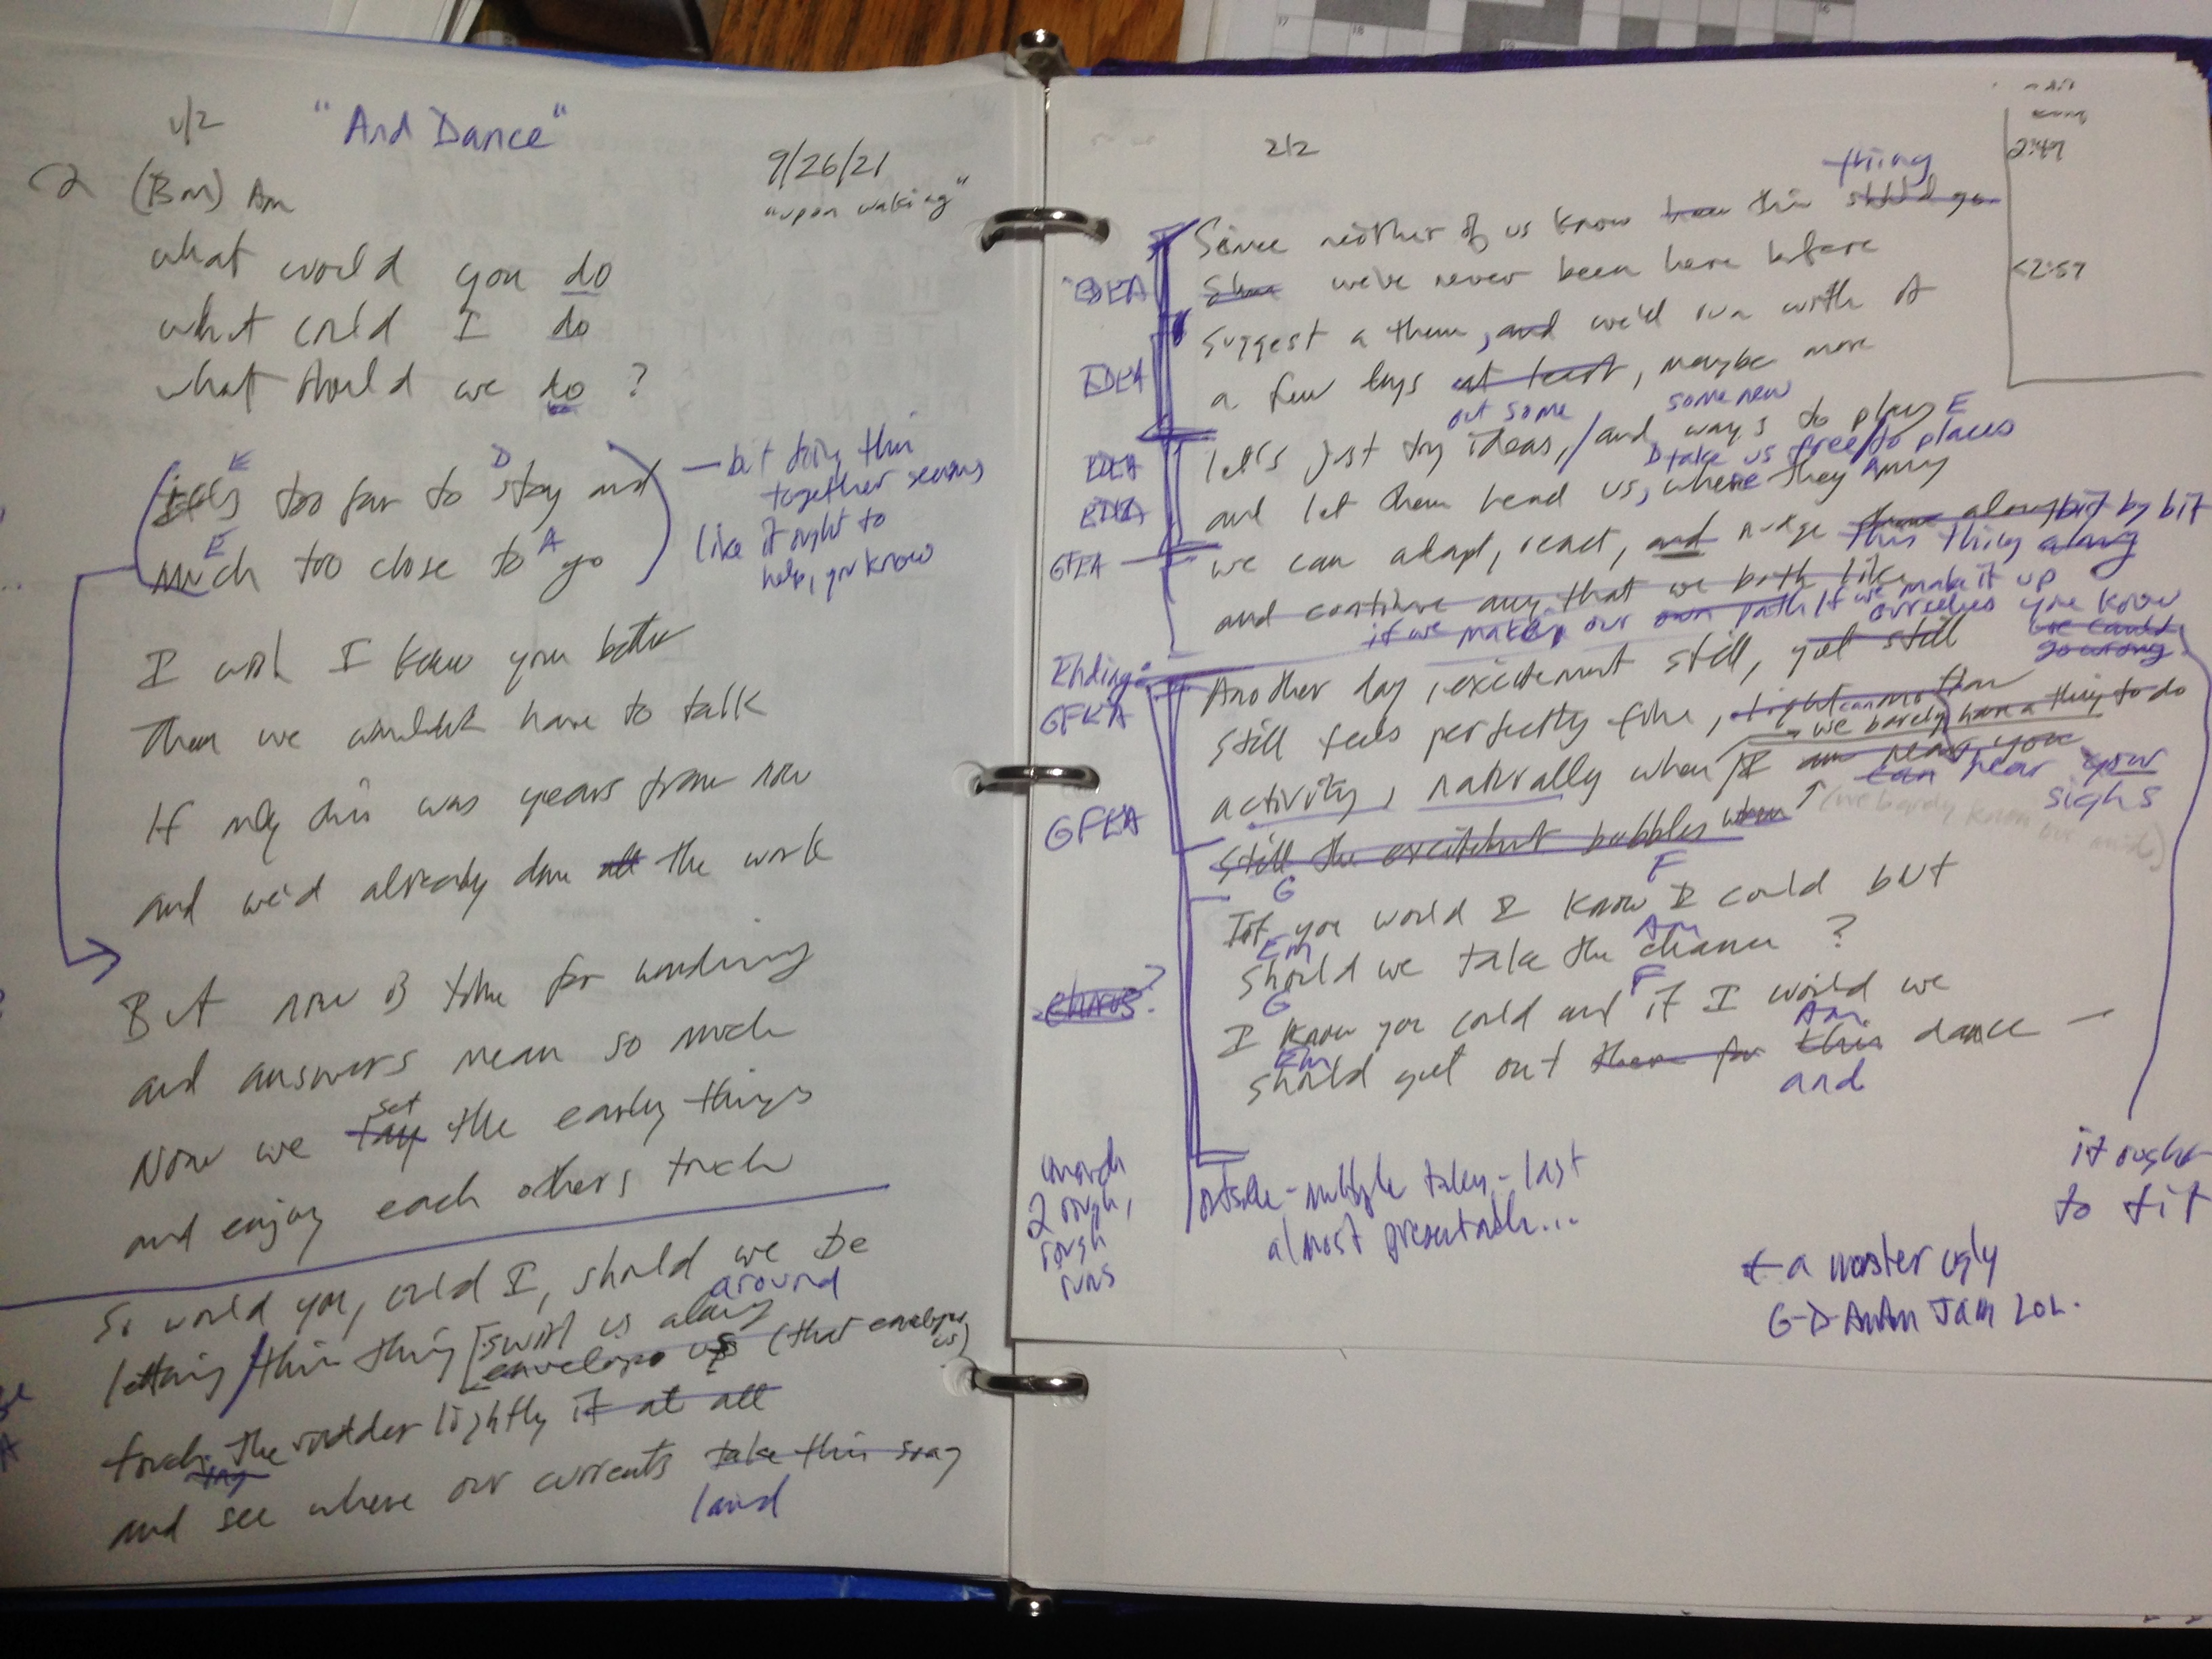 1/2
"And Dance"
9/26/21
"upon waking"
(Bm) Am
what would you do
what could I do
what should we do ?
E D
it's too far to stay and
E A
much too close to go
— but doing this
together seems
like it ought to
help, you know
I wish I knew you better
Then we wouldn't have to talk
If only this was years from now
and we'd already done all the work
But now is time for wondering
and answers mean so much
set
Now we lay the early things
and enjoy each others touch
So would you, could I, should we be
around
letting this thing [swirl us along
envelope us (that envelopes us)
touch the rudder lightly if at all
try
and see where our currents take this song
land
2/2
2:49
<2:57
thing
Since neither of us know how this should go
EDEA
we've never been here before
suggest a theme, and we'll run with it
EDEA
a few lays at least, maybe more
out some some new
let's just try ideas, / and ways to play E
EDEA
D take us free/to places
and let them lead us, where they A may
EDEA
we can adapt, react, and nudge them along bit by bit
GFEA
this thing along
and continue any that we both like
if we make our own path If we make it up
ourselves you know
we can't
go wrong
Ending:
Another day, excitement still, yet still
GFEA
still feels perfectly fine,
we barely have a thing to do
activity, naturally when I am near you
can hear your
sighs
GFEA
still the excitement bubbles when
G F
If you would I know I could but
Em Am
should we take the chance ?
G F
chorus?
I know you could and if I would we
Em Am
should get out there for this dance —
and
it ought
to fit
2 rough,
rough
runs
outside - multiple takes - last
almost presentable...
← a monster ugly
G-D-Am Jam LOL.
17
18
16